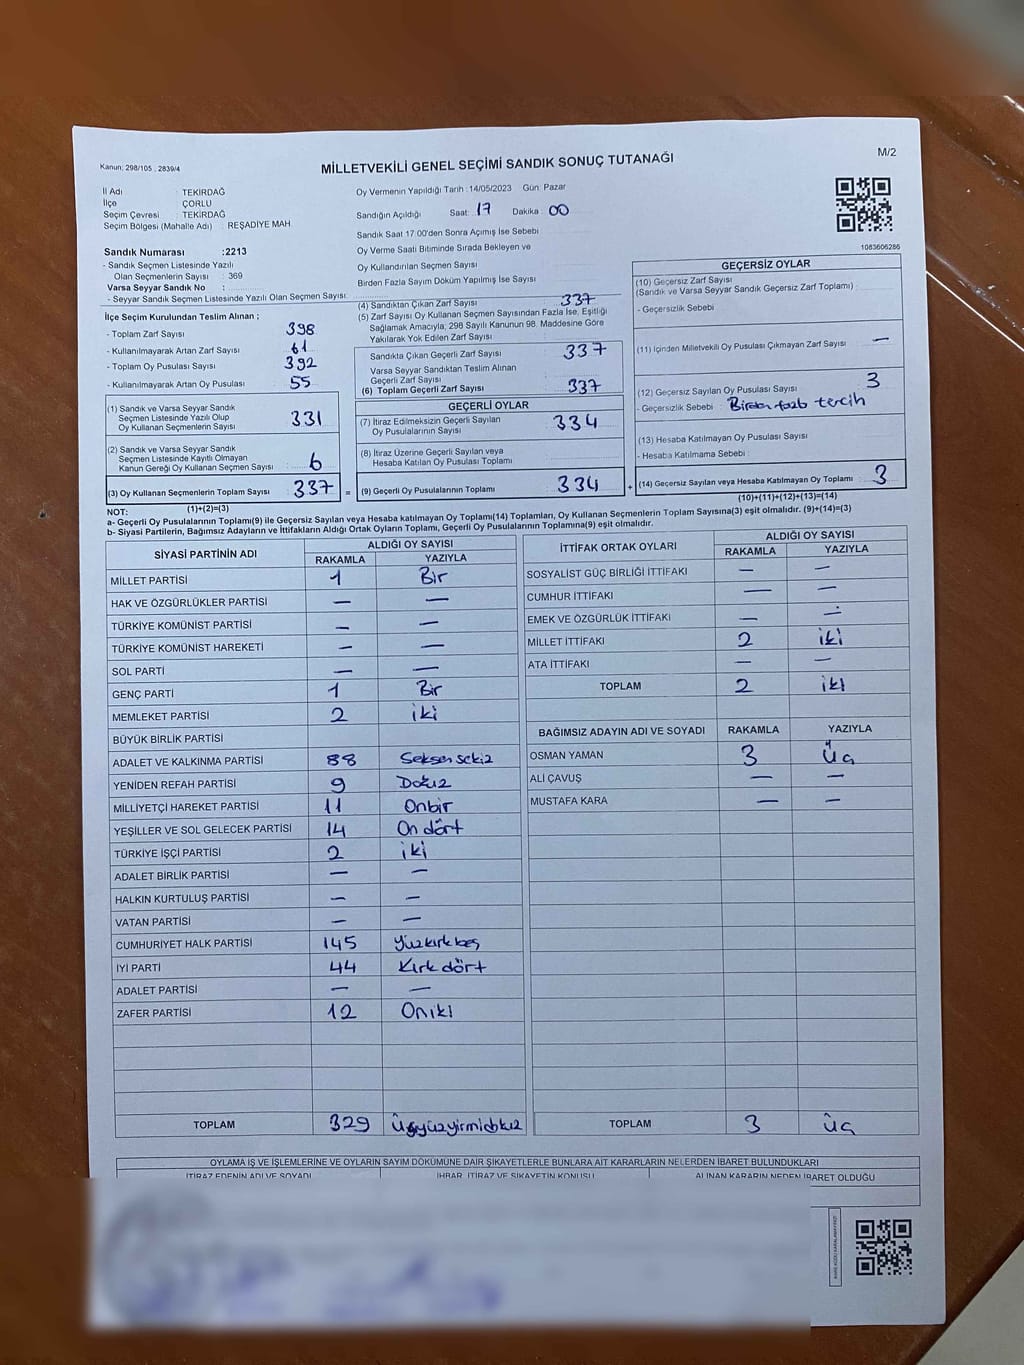 Kanun: 298/105 , 2839/4
MİLLETVEKİLİ GENEL SEÇİMİ SANDIK SONUÇ TUTANAĞI
M/2
İl Adı : TEKİRDAĞ
İlçe : ÇORLU
Seçim Çevresi : TEKİRDAĞ
Seçim Bölgesi (Mahalle Adı) : REŞADİYE MAH
Sandık Numarası :2213
- Sandık Seçmen Listesinde Yazılı
Olan Seçmenlerin Sayısı : 369
Varsa Seyyar Sandık No :
- Seyyar Sandık Seçmen Listesinde Yazılı Olan Seçmen Sayısı:
İlçe Seçim Kurulundan Teslim Alınan ;
- Toplam Zarf Sayısı 398
- Kullanılmayarak Artan Zarf Sayısı 61
- Toplam Oy Pusulası Sayısı 392
- Kullanılmayarak Artan Oy Pusulası 55
(1) Sandık ve Varsa Seyyar Sandık
Seçmen Listesinde Yazılı Olup
Oy Kullanan Seçmenlerin Sayısı 331
(2) Sandık ve Varsa Seyyar Sandık
Seçmen Listesinde Kayıtlı Olmayan
Kanun Gereği Oy Kullanan Seçmen Sayısı 6
(3) Oy Kullanan Seçmenlerin Toplam Sayısı 337 =
(1)+(2)=(3)
Oy Vermenin Yapıldığı Tarih : 14/05/2023 Gün: Pazar
Sandığın Açıldığı Saat: 17 Dakika 00
Sandık Saat 17:00'den Sonra Açımış İse Sebebi
Oy Verme Saati Bitiminde Sırada Bekleyen ve
Oy Kullandırılan Seçmen Sayısı
Birden Fazla Sayım Döküm Yapılmış İse Sayısı
(4) Sandıktan Çıkan Zarf Sayısı 337
(5) Zarf Sayısı Oy Kullanan Seçmen Sayısından Fazla İse, Eşitliği
Sağlamak Amacıyla; 298 Sayılı Kanunun 98. Maddesine Göre
Yakılarak Yok Edilen Zarf Sayısı
Sandıkta Çıkan Geçerli Zarf Sayısı 337
Varsa Seyyar Sandıktan Teslim Alınan
Geçerli Zarf Sayısı
(6) Toplam Geçerli Zarf Sayısı 337
GEÇERLİ OYLAR
(7) İtiraz Edilmeksizin Geçerli Sayılan
Oy Pusulalarının Sayısı 334
(8) İtiraz Üzerine Geçerli Sayılan veya
Hesaba Katılan Oy Pusulası Toplamı
(9) Geçerli Oy Pusulalarının Toplamı 334 +
1083606286
GEÇERSİZ OYLAR
(10) Geçersiz Zarf Sayısı
(Sandık ve Varsa Seyyar Sandık Geçersiz Zarf Toplamı)
- Geçersizlik Sebebi :
(11) İçinden Milletvekili Oy Pusulası Çıkmayan Zarf Sayısı —
(12) Geçersiz Sayılan Oy Pusulası Sayısı 3
- Geçersizlik Sebebi : Birden fazla tercih
(13) Hesaba Katılmayan Oy Pusulası Sayısı
- Hesaba Katılmama Sebebi :
(14) Geçersiz Sayılan veya Hesaba Katılmayan Oy Toplamı 3
(10)+(11)+(12)+(13)=(14)
NOT:
a- Geçerli Oy Pusulalarının Toplamı(9) ile Geçersiz Sayılan veya Hesaba katılmayan Oy Toplamı(14) Toplamları, Oy Kullanan Seçmenlerin Toplam Sayısına(3) eşit olmalıdır. (9)+(14)=(3)
b- Siyasi Partilerin, Bağımsız Adayların ve İttifakların Aldığı Ortak Oyların Toplamı, Geçerli Oy Pusulalarının Toplamına(9) eşit olmalıdır.
SİYASİ PARTİNİN ADI
ALDIĞI OY SAYISI
RAKAMLA YAZIYLA
MİLLET PARTİSİ 1 Bir
HAK VE ÖZGÜRLÜKLER PARTİSİ — —
TÜRKİYE KOMÜNİST PARTİSİ — —
TÜRKİYE KOMÜNİST HAREKETİ — —
SOL PARTİ — —
GENÇ PARTİ 1 Bir
MEMLEKET PARTİSİ 2 iki
BÜYÜK BİRLİK PARTİSİ
ADALET VE KALKINMA PARTİSİ 88 Seksen sekiz
YENİDEN REFAH PARTİSİ 9 Dokuz
MİLLİYETÇİ HAREKET PARTİSİ 11 Onbir
YEŞİLLER VE SOL GELECEK PARTİSİ 14 On dört
TÜRKİYE İŞÇİ PARTİSİ 2 iki
ADALET BİRLİK PARTİSİ — —
HALKIN KURTULUŞ PARTİSİ — —
VATAN PARTİSİ — —
CUMHURİYET HALK PARTİSİ 145 yüzkırkbeş
İYİ PARTİ 44 Kırk dört
ADALET PARTİSİ — —
ZAFER PARTİSİ 12 Oniki
TOPLAM 329 üçyüzyirmidokuz
İTTİFAK ORTAK OYLARI
ALDIĞI OY SAYISI
RAKAMLA YAZIYLA
SOSYALİST GÜÇ BİRLİĞİ İTTİFAKI — —
CUMHUR İTTİFAKI — —
EMEK VE ÖZGÜRLÜK İTTİFAKI — —
MİLLET İTTİFAKI 2 iki
ATA İTTİFAKI — —
TOPLAM 2 iki
BAĞIMSIZ ADAYIN ADI VE SOYADI RAKAMLA YAZIYLA
OSMAN YAMAN 3 Üç
ALİ ÇAVUŞ — —
MUSTAFA KARA — —
TOPLAM 3 üç
OYLAMA İŞ VE İŞLEMLERİNE VE OYLARIN SAYIM DÖKÜMÜNE DAİR ŞİKAYETLERLE BUNLARA AİT KARARLARIN NELERDEN İBARET BULUNDUKLARI
İTİRAZ EDENİN ADI VE SOYADI İHBAR, İTİRAZ VE ŞİKAYETİN KONUSU ALINAN KARARIN NEDEN İBARET OLDUĞU